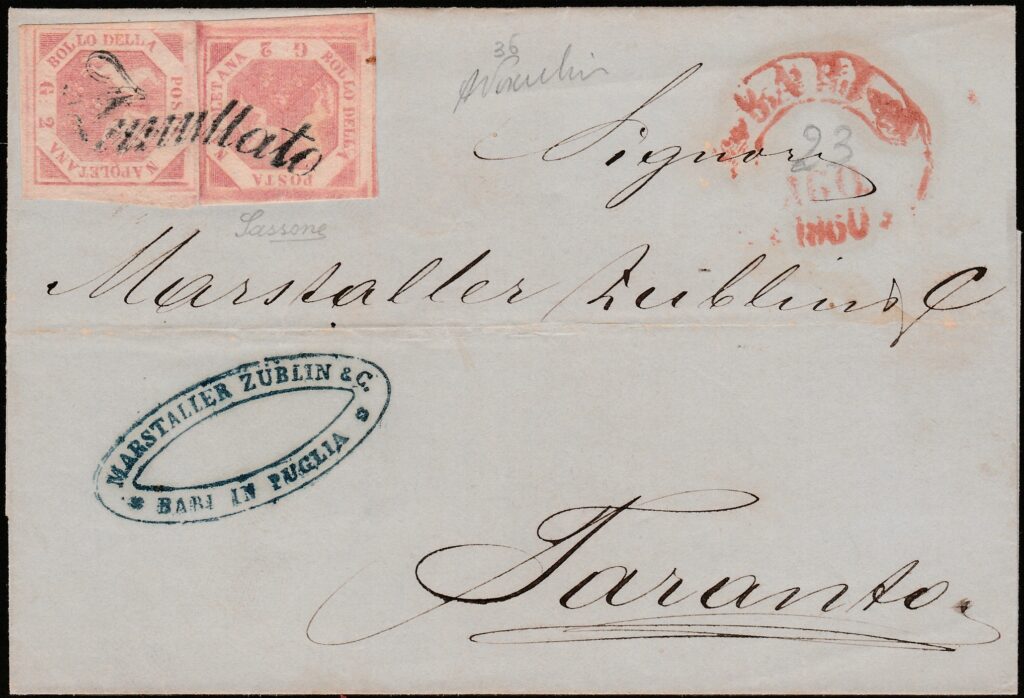 BOLLO DELLA POSTA NAPOLETANA G 2
BOLLO DELLA POSTA NAPOLETANA G 2
Annullato
Sassone
36
Signori
23
AGO
1860
Marstaller Züblin & C
MARSTALLER ZÜBLIN & C.
BARI IN PUGLIA
Taranto.